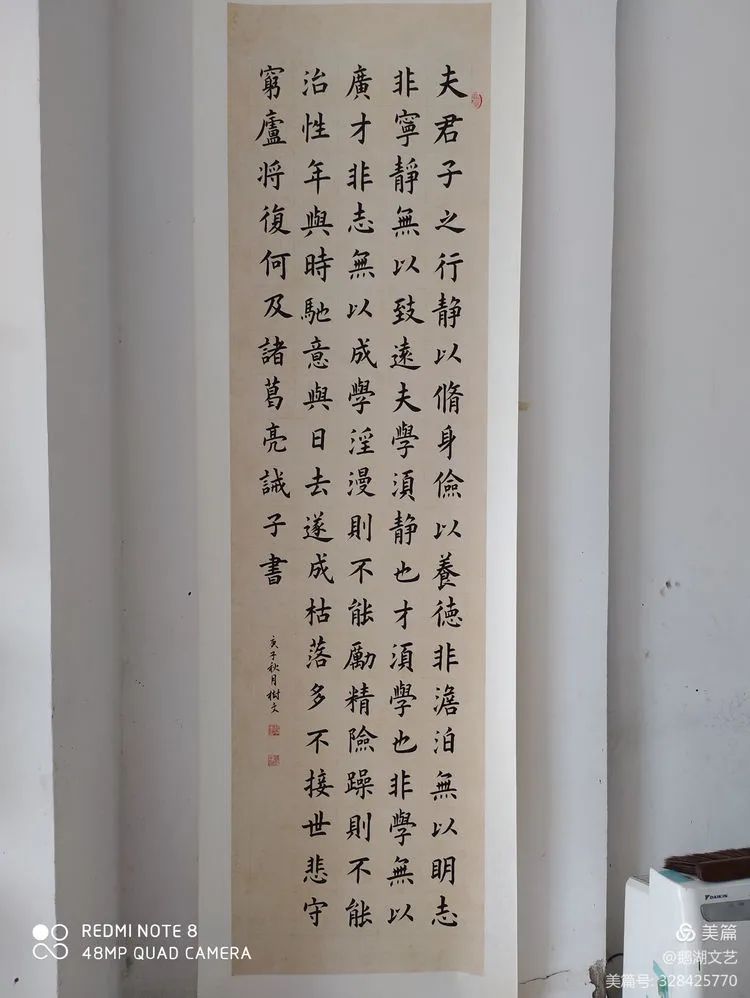 夫君子之行静以脩身儉以養德非澹泊無以明志
非寧靜無以致遠夫學須静也才須學也非學無以
廣才非志無以成學淫漫則不能勵精險躁則不能
治性年與時馳意與日去遂成枯落多不接世悲守
窮廬將復何及諸葛亮誡子書
庚子秋月樹文
DAIKIN
REDMI NOTE 8
48MP QUAD CAMERA
美篇
@鹅湖文艺
美篇号:328425770